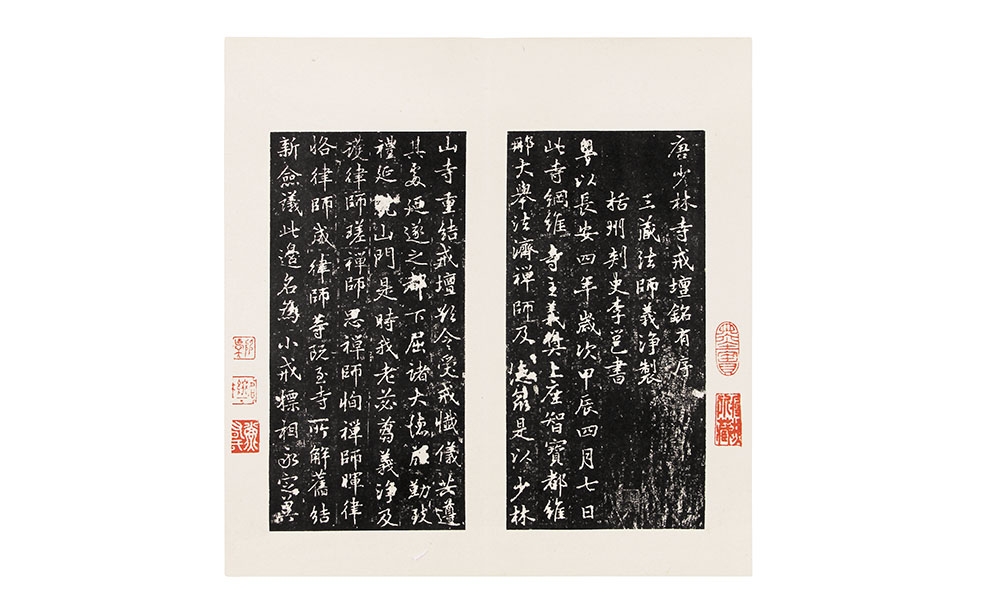 唐少林寺戒壇銘有序
三藏法師義淨製
括州刺史李邕書
粵以長安四年歲次甲辰四月七日
此寺綱維寺主義奬上座智寶都維
那大舉法濟禪師及衆是以少林
山寺重結戒壇欲令受戒懺儀共遵
其處遂之都下屈諸大德勤致
禮延就山門是時我老苾蒭義淨及
護律師瑳禪師思禪師恂禪師暉律
恪律師威律師等既至寺所解舊結
新僉議此邊名爲小戒標相永定冀